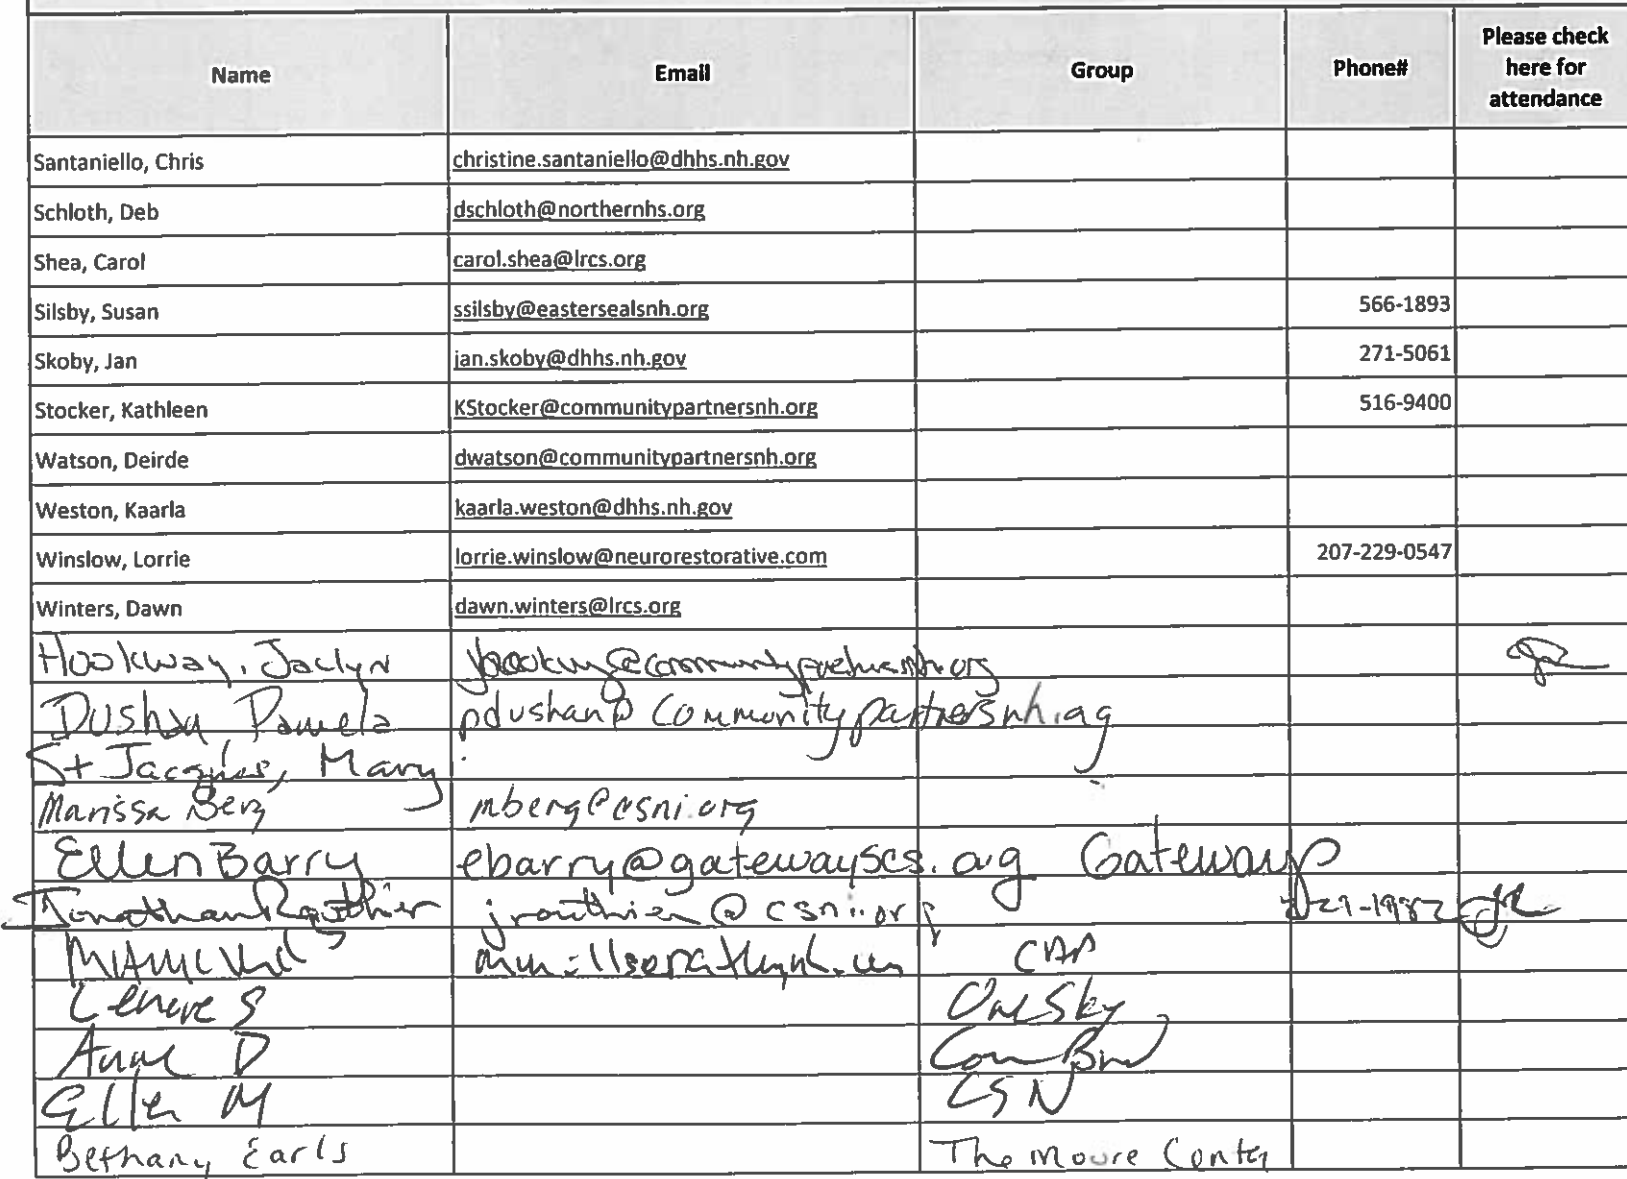 Name Email Group Phone# Please check here for attendance
Santaniello, Chris christine.santaniello@dhhs.nh.gov
Schloth, Deb dschloth@northernhs.org
Shea, Carol carol.shea@lrcs.org
Silsby, Susan ssilsby@eastersealsnh.org 566-1893
Skoby, Jan jan.skoby@dhhs.nh.gov 271-5061
Stocker, Kathleen KStocker@communitypartnersnh.org 516-9400
Watson, Deirde dwatson@communitypartnersnh.org
Weston, Kaarla kaarla.weston@dhhs.nh.gov
Winslow, Lorrie lorrie.winslow@neurorestorative.com 207-229-0547
Winters, Dawn dawn.winters@lrcs.org
Hookway, Jaclyn
Pamela pdushan@communitypartnersnh.org
St Jacques, Mary
Marissa Berg mberg@csni.org
Ellen Barry ebarry@gatewayscs.org Gateways
Jonathan Routhier jrouthier@csni.org
Lenore S OneSky
Anne D
Ellen M CSN
Bethany Earls The Moore Center